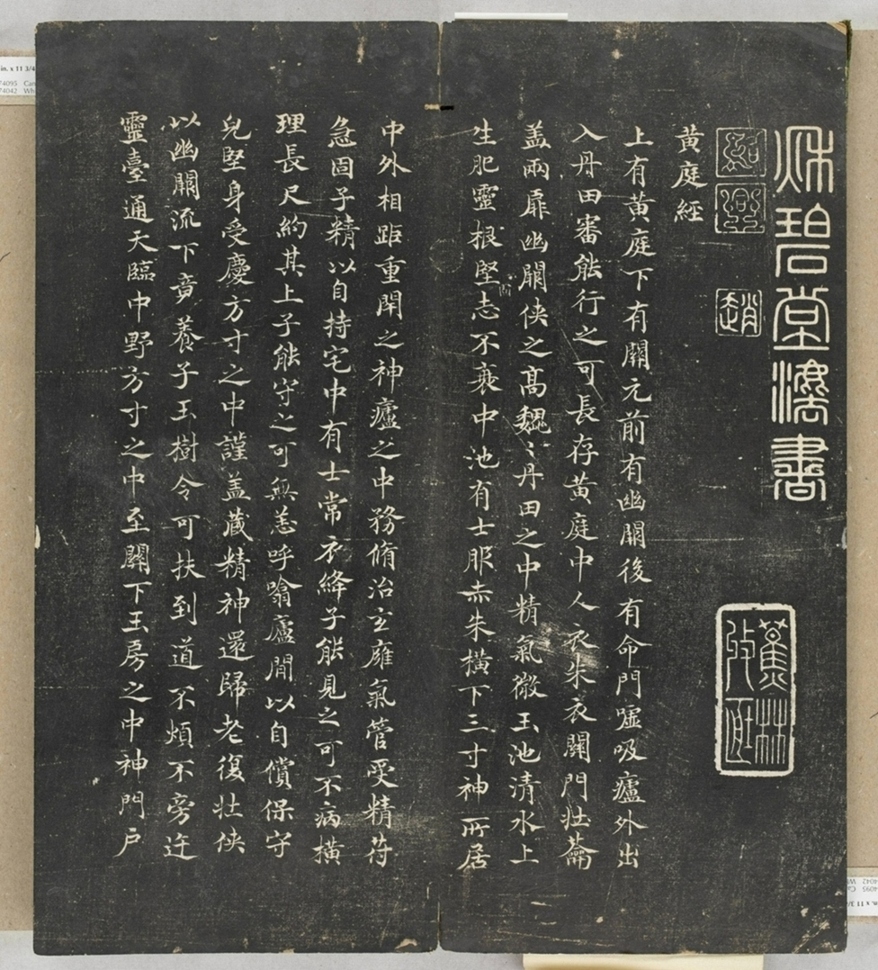 秌碧堂灋書
紹興
趙
蕉林收藏
黃庭經
上有黃庭下有關元前有幽闕後有命門噓吸廬外出
入丹田審能行之可長存黃庭中人衣朱衣關門壯蘥
盖兩扉幽闕俠之高魏〻丹田之中精氣微玉池清水上
生肥靈根堅志不衰中池有士服赤朱橫下三寸神所居
中外相距重閇之神廬之中務脩治玄廱氣管受精苻
急固子精以自持宅中有士常衣絳子能見之可不病橫
理長尺約其上子能守之可無恙呼噏廬間以自償保守
皃堅身受慶方寸之中謹盖藏精神還歸老復壯俠
以幽闕流下竟養子玉樹令可扶至道不煩不旁迕
靈臺通天臨中野方寸之中至關下玉房之中神門戶